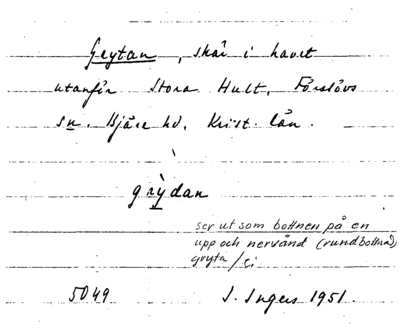 Grytan, skär i havet
utanför Stora Hult, Förslövs
sn. Bjäre hd. Krist. län.
grỳdan
ser ut som bottnen på en
upp och nervänd (rundbottnad)
gryta
5049 I. Ingers 1951.